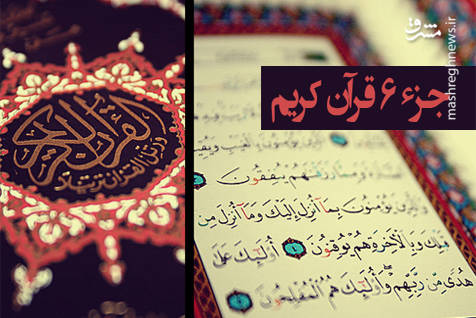 مشرق
mashreghnews.ir
جزء ۶ قرآن کریم
القرآن الكريم
ورتل القرآن ترتيلا
وَمِمَّا رَزَقْنَاهُمْ يُنْفِقُونَ
وَالَّذِينَ يُؤْمِنُونَ بِمَا أُنْزِلَ إِلَيْكَ وَمَا أُنْزِلَ مِنْ
قَبْلِكَ وَبِالْآخِرَةِ هُمْ يُوقِنُونَ أُولَٰئِكَ عَلَىٰ
هُدًى مِنْ رَبِّهِمْ وَأُولَٰئِكَ هُمُ الْمُفْلِحُونَ